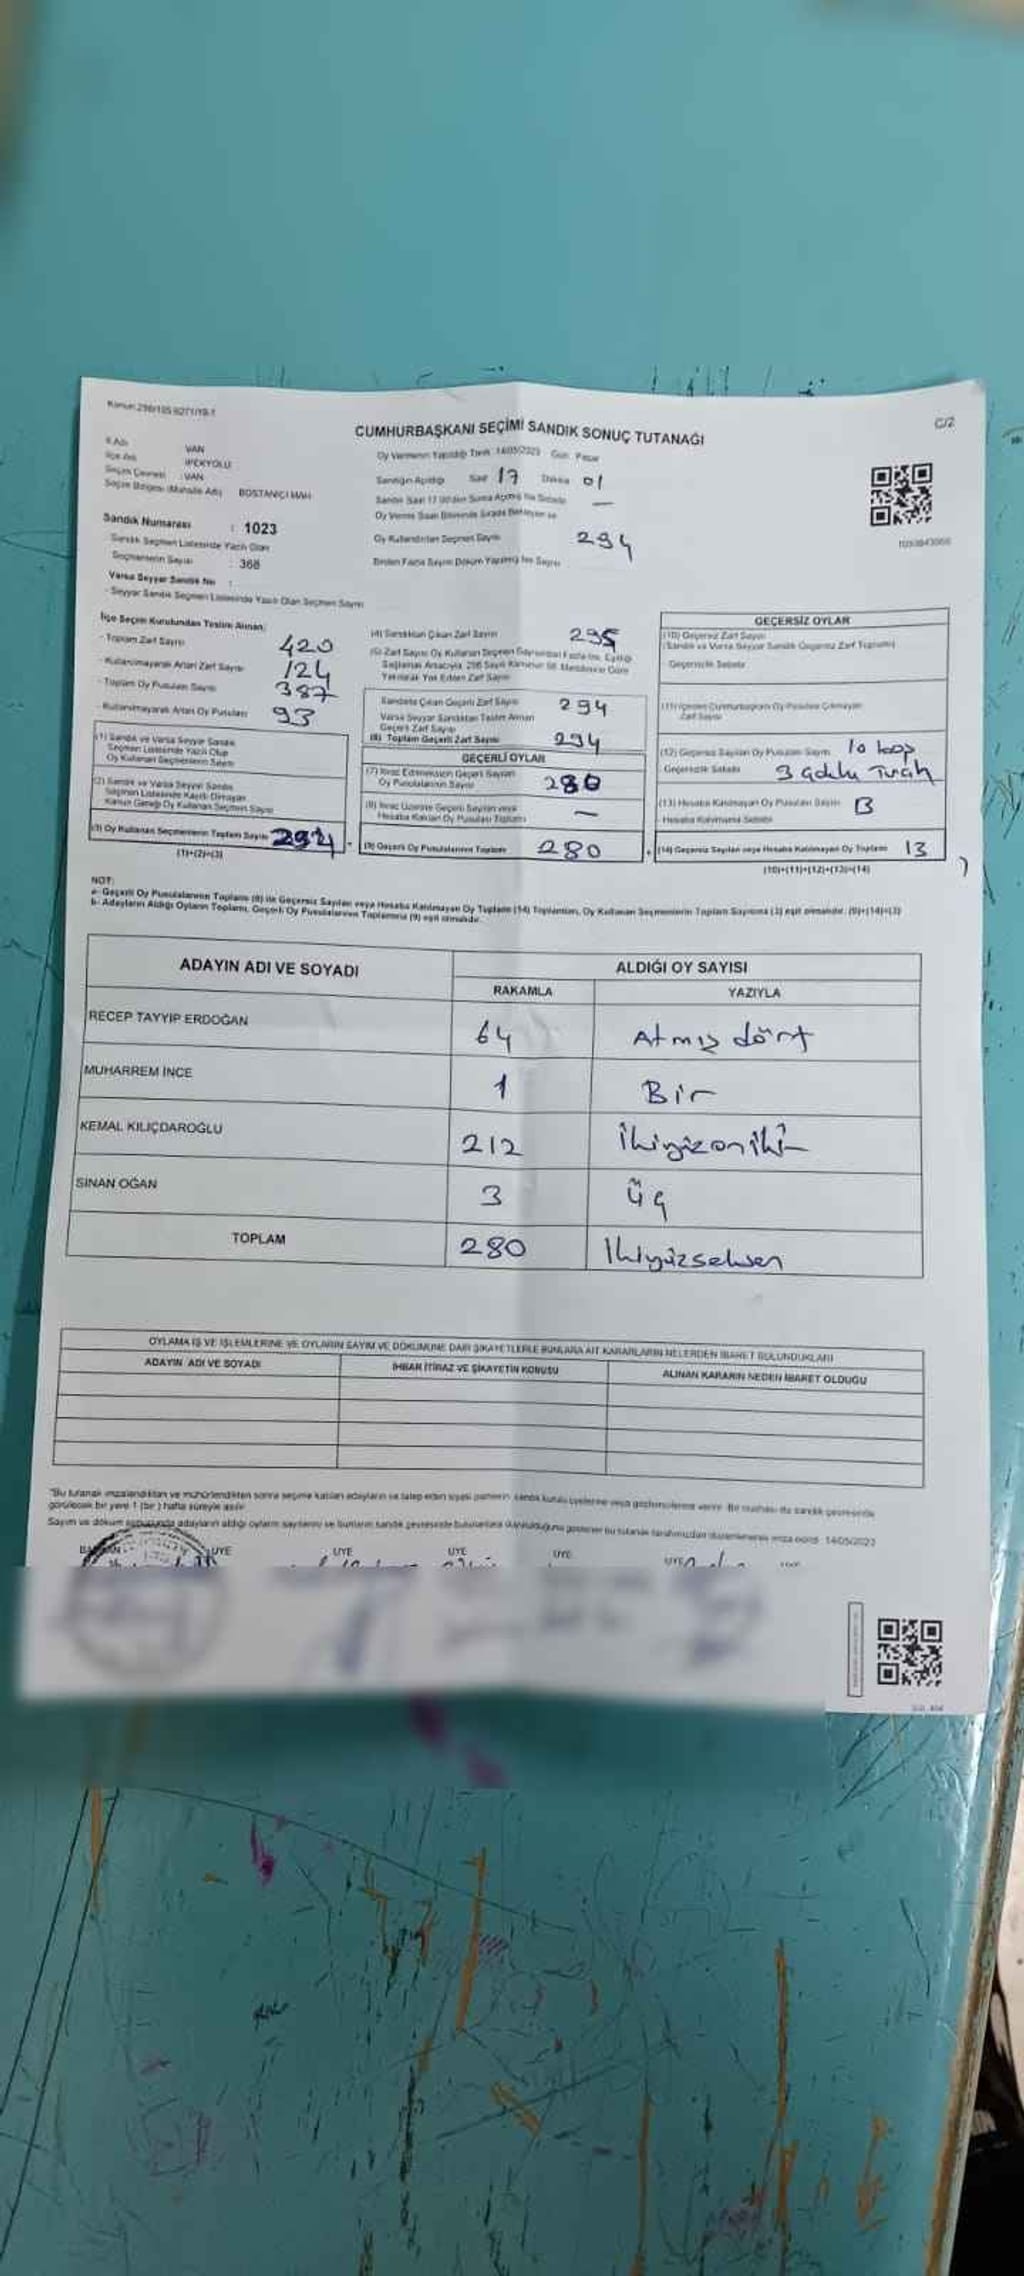 Kanun:298/105
C/2
CUMHURBAŞKANI SEÇİMİ SANDIK SONUÇ TUTANAĞI
İl Adı VAN
İlçe Adı İPEKYOLU
Seçim Çevresi : VAN
Seçim Bölgesi (Mahalle Adı) BOSTANİÇİ MAH
Oy Vermenin Yapıldığı Tarih 14/05/2023 Gün Pazar
Sandığın Açıldığı Saat 17 Dakika 01
Oy Kullandırılan Seçmen Sayısı 294
Sandık Numarası : 1023
Sandık Seçmen Listesinde Yazılı Olan
Seçmenlerin Sayısı : 368
Varsa Seyyar Sandık No :
- Seyyar Sandık Seçmen Listesinde Yazılı Olan Seçmen Sayısı
İlçe Seçim Kurulundan Teslim Alınan:
- Toplam Zarf Sayısı 420
- Kullanılmayarak Artan Zarf Sayısı 124
- Toplam Oy Pusulası Sayısı 387
- Kullanılmayarak Artan Oy Pusulası 93
(1) Sandık ve Varsa Seyyar Sandık
Seçmen Listesinde Yazılı Olup
Oy Kullanan Seçmenlerin Sayısı
(2) Sandık ve Varsa Seyyar Sandık
Seçmen Listesinde Kayıtlı Olmayan
Kanun Gereği Oy Kullanan Seçmen Sayısı
(3) Oy Kullanan Seçmenlerin Toplam Sayısı 294
(1)+(2)=(3)
(4) Sandıktan Çıkan Zarf Sayısı 295
Sandıkta Çıkan Geçerli Zarf Sayısı 294
Varsa Seyyar Sandıktan Teslim Alınan
Geçerli Zarf Sayısı
(6) Toplam Geçerli Zarf Sayısı 294
GEÇERLİ OYLAR
(7) İtiraz Edilmeksizin Geçerli Sayılan
Oy Pusulalarının Sayısı 280
(8) İtiraz Üzerine Geçerli Sayılan veya
Hesaba Katılan Oy Pusulası Toplamı —
(9) Geçerli Oy Pusulalarının Toplamı 280
GEÇERSİZ OYLAR
(10) Geçersiz Zarf Sayısı
(Sandık ve Varsa Seyyar Sandık Geçersiz Zarf Toplamı)
Geçersizlik Sebebi
(11) İçinden Cumhurbaşkanı Oy Pusulası Çıkmayan
Zarf Sayısı
(12) Geçersiz Sayılan Oy Pusulası Sayısı 10
Geçersizlik Sebebi 3 adet
(13) Hesaba Katılmayan Oy Pusulası Sayısı
Hesaba Katılmama Sebebi
(14) Geçersiz Sayılan veya Hesaba Katılmayan Oy Toplamı 13
(10)+(11)+(12)+(13)=(14)
NOT:
a- Geçerli Oy Pusulalarının Toplamı (9) ile Geçersiz Sayılan veya Hesaba Katılmayan Oy Toplamı (14) Toplamları, Oy Kullanan Seçmenlerin Toplam Sayısına (3) eşit olmalıdır. (9)+(14)=(3)
b- Adayların Aldığı Oyların Toplamı, Geçerli Oy Pusulalarının Toplamına (9) eşit olmalıdır.
ADAYIN ADI VE SOYADI ALDIĞI OY SAYISI
RAKAMLA YAZIYLA
RECEP TAYYIP ERDOĞAN 64 Atmış dört
MUHARREM İNCE 1 Bir
KEMAL KILIÇDAROĞLU 212 İkiyüzoniki
SİNAN OĞAN 3 üç
TOPLAM 280 İkiyüzseksen
OYLAMA İŞ VE İŞLEMLERİNE VE OYLARIN SAYIM VE DÖKÜMÜNE DAİR ŞİKAYETLERLE BUNLARA AİT KARARLARIN NELERDEN İBARET BULUNDUKLARI
ADAYIN ADI VE SOYADI İHBAR İTİRAZ VE ŞİKAYETİN KONUSU ALINAN KARARIN NEDEN İBARET OLDUĞU
"Bu tutanak imzalandıktan ve mühürlendikten sonra seçime katılan adayların ve talep eden siyasi partilerin sandık kurulu üyelerine veya gözlemcilerine verilir. Bir nüshası da sandık çevresinde
görülecek bir yere 1 (bir) hafta süreyle asılır
ÜYE ÜYE ÜYE ÜYE ÜYE